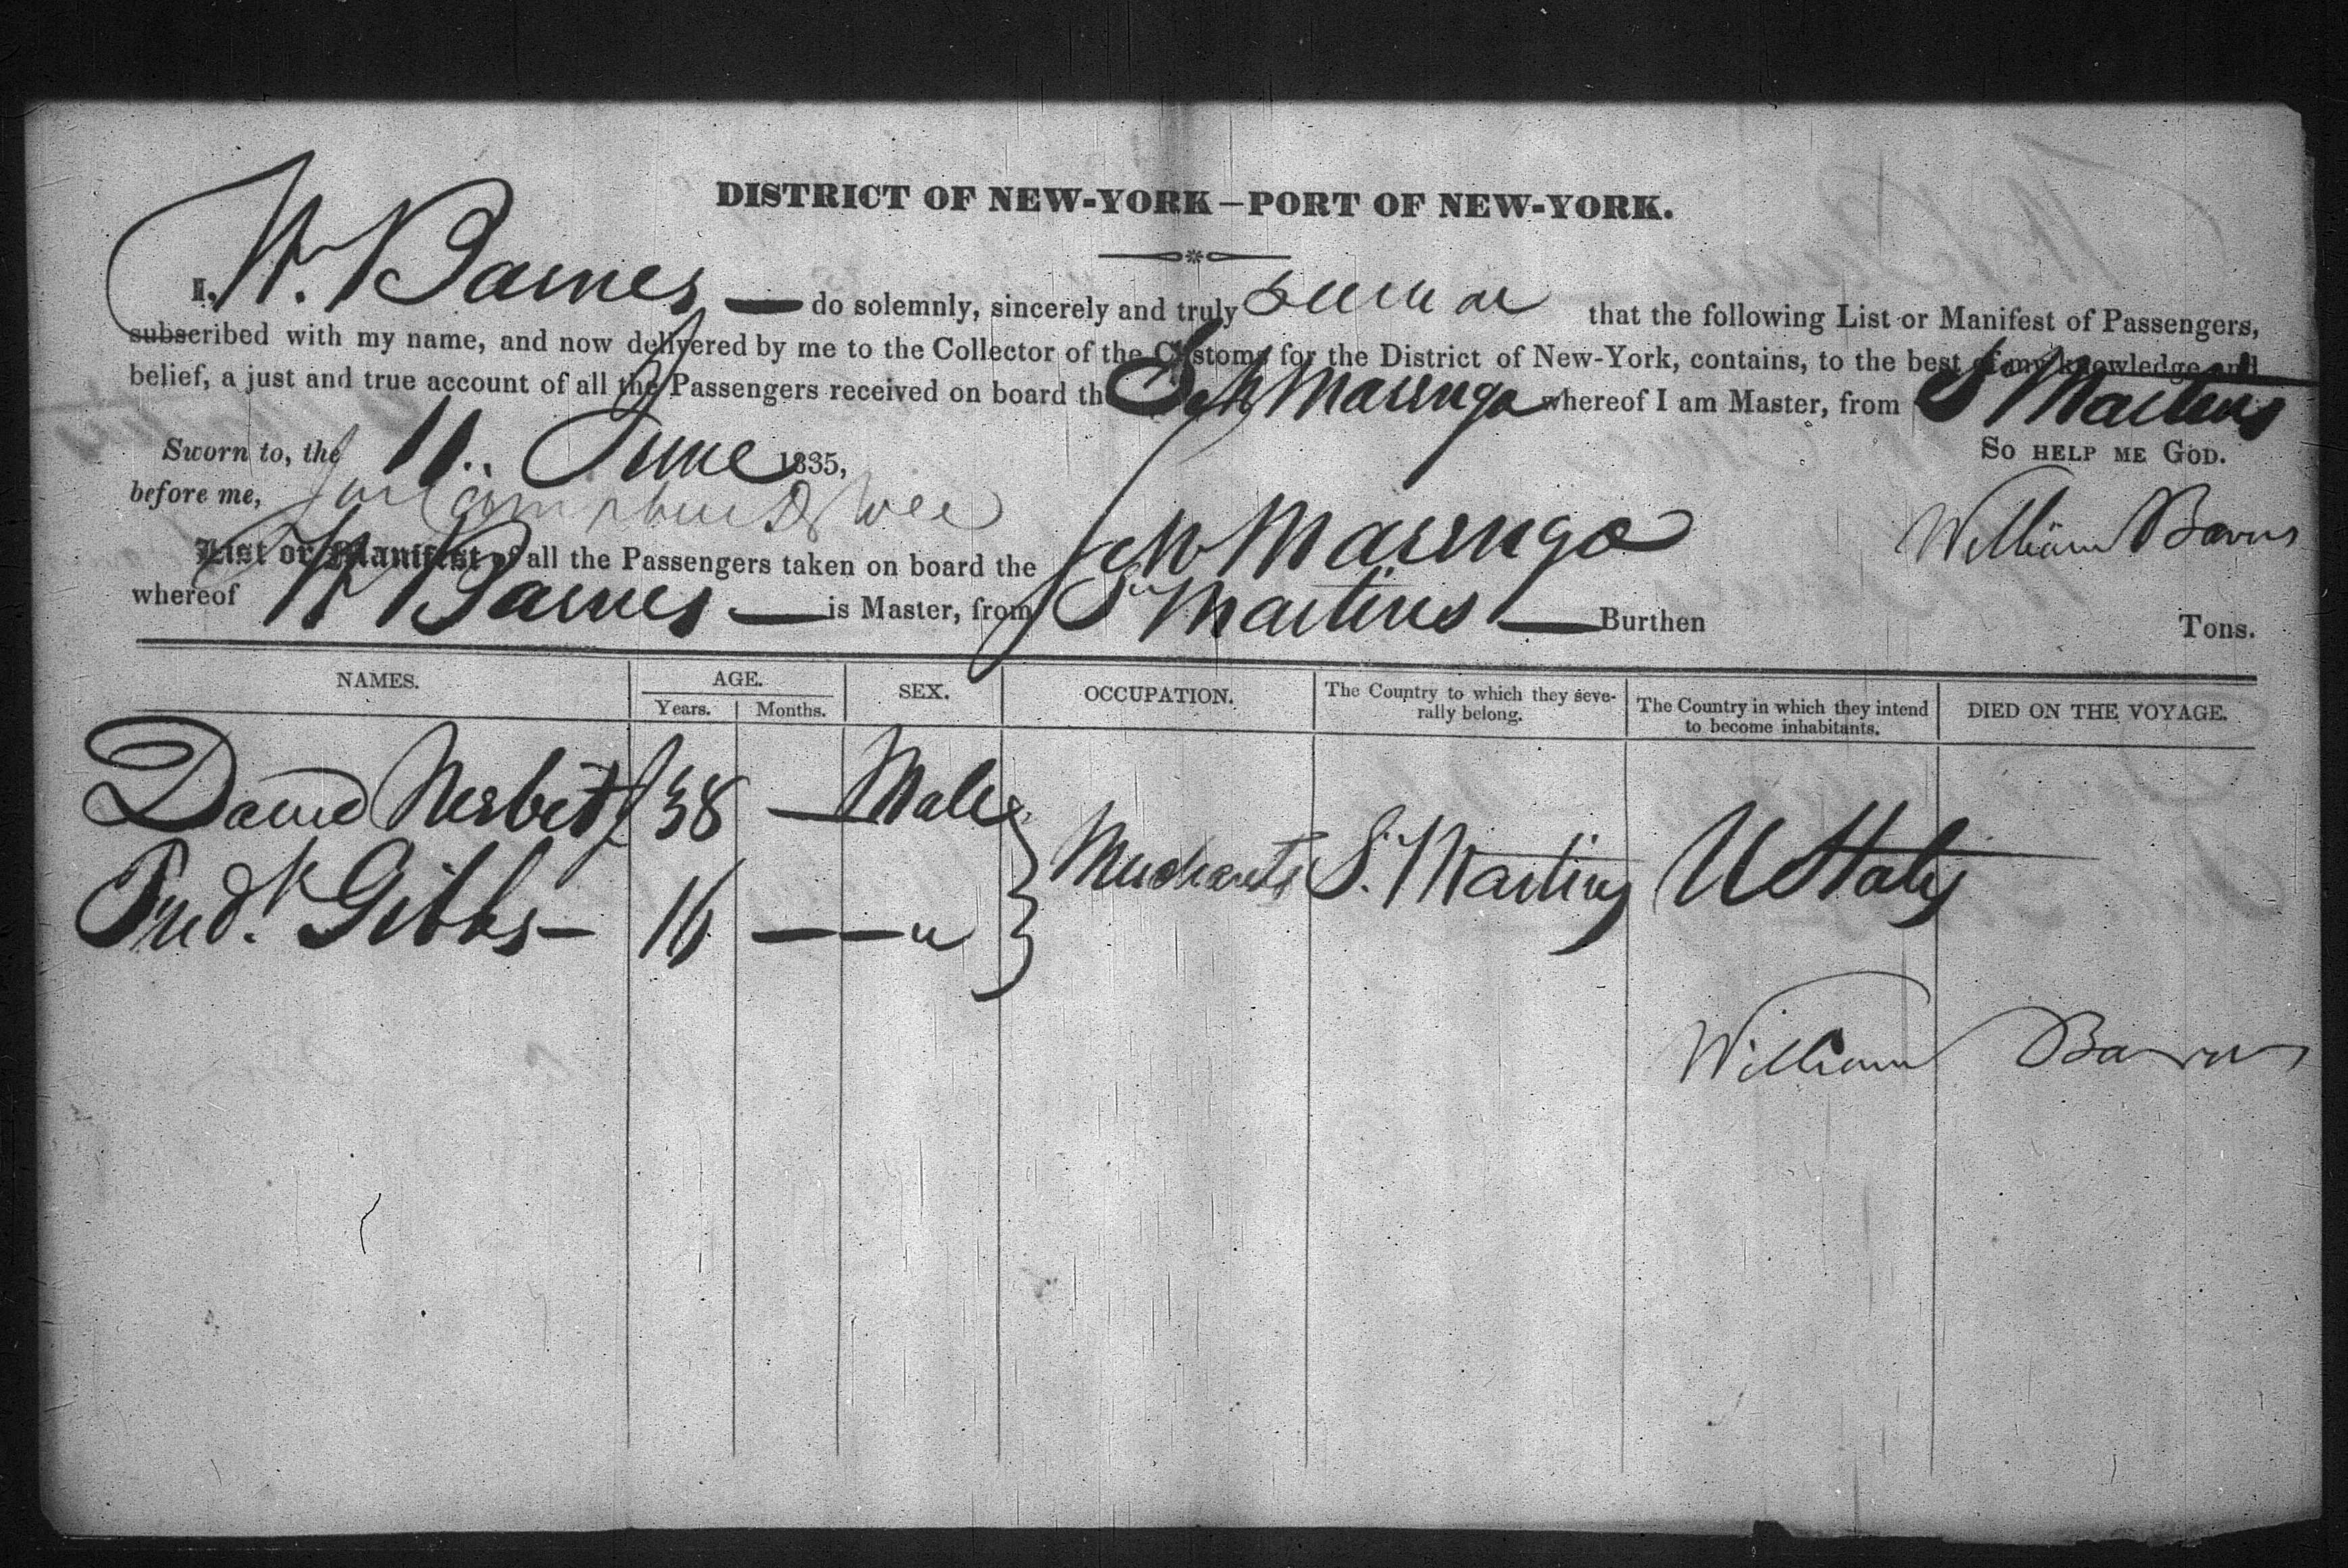 DISTRICT OF NEW-YORK—PORT OF NEW-YORK.
I, W. Barnes — do solemnly, sincerely and truly swear that the following List or Manifest of Passengers,
subscribed with my name, and now delivered by me to the Collector of the Customs for the District of New-York, contains, to the best of my knowledge and
belief, a just and true account of all the Passengers received on board the Sch Marengo whereof I am Master, from St Martins
Sworn to, the 11.. June 1835, So HELP ME GOD.
before me,
William Barns
List or Manifest of all the Passengers taken on board the Sch Marengo
whereof W Barnes — is Master, from St Martins — Burthen Tons.
NAMES. AGE. SEX. OCCUPATION. The Country to which they seve-
rally belong. The Country in which they intend
to become inhabitants. DIED ON THE VOYAGE.
Years. Months.
David Nesbitt 38 — Male
Merchants St. Martins U States
Fredk. Gibbs — 16 — — "
William Barns